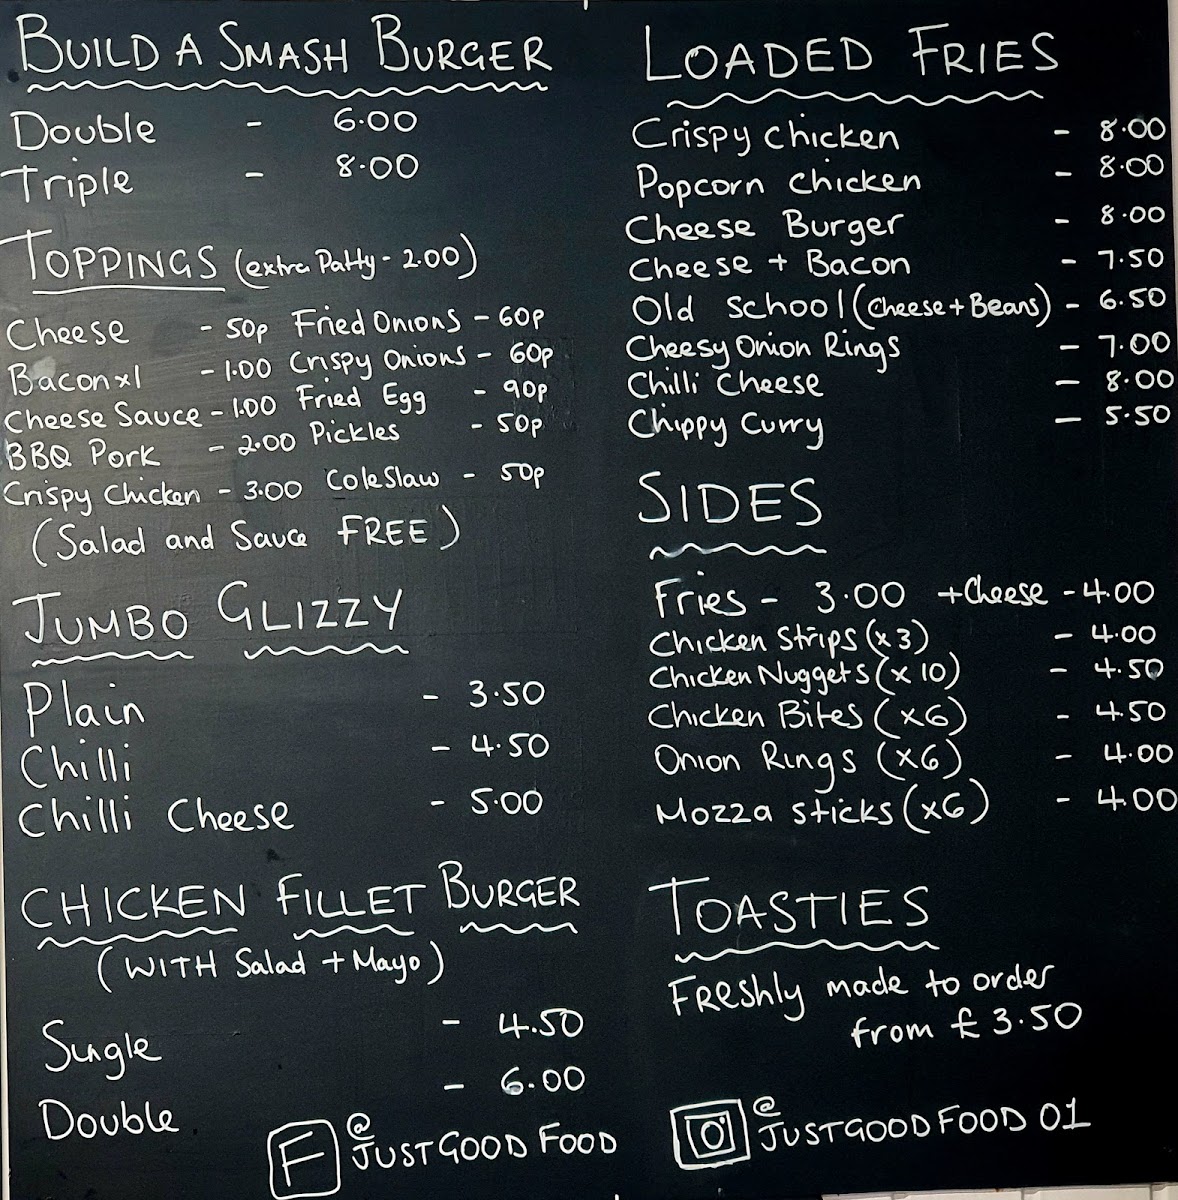 BUILD A SMASH BURGER
Double - 6.00
Triple - 8.00
TOPPINGS (extra Patty - 2.00)
Cheese - 50p Fried Onions - 60p
Bacon x1 - 1.00 Crispy Onions - 60p
Cheese Sauce - 1.00 Fried Egg - 90p
BBQ Pork - 2.00 Pickles - 50p
Crispy Chicken - 3.00 Coleslaw - 50p
(Salad and Sauce FREE)
JUMBO GLIZZY
Plain - 3.50
Chilli - 4.50
Chilli Cheese - 5.00
CHICKEN FILLET BURGER
(WITH Salad + Mayo)
Single - 4.50
Double - 6.00
F @JUSTGOODFOOD
LOADED FRIES
Crispy chicken - 8.00
Popcorn chicken - 8.00
Cheese Burger - 8.00
Cheese + Bacon - 7.50
Old School (Cheese + Beans) - 6.50
Cheesy Onion Rings - 7.00
Chilli Cheese - 8.00
Chippy Curry - 5.50
SIDES
Fries - 3.00 + Cheese - 4.00
Chicken Strips (x3) - 4.00
Chicken Nuggets (x10) - 4.50
Chicken Bites (x6) - 4.50
Onion Rings (x6) - 4.00
Mozza sticks (x6) - 4.00
TOASTIES
Freshly made to order
from £3.50
@JUSTGOODFOOD01